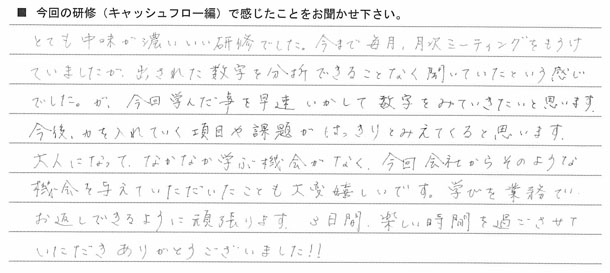 ■ 今回の研修（キャッシュフロー編）で感じたことをお聞かせ下さい。
とても中味が濃いいい研修でした。今まで毎月、月次ミーティングをもうけ
ていましたが、出された数字を分析できることなく聞いていたという感じ
でした。が、今回学んだ事を早速いかして数字をみていきたいと思います。
今後、力を入れていく項目や課題がはっきりとみえてくると思います。
大人になって、なかなか学ぶ機会がなく、今回会社からそのような
機会を与えていただいたことも大変嬉しいです。学びを業務で
お返しできるように頑張ります。3日間、楽しい時間を過ごさせて
いただきありがとうございました!!